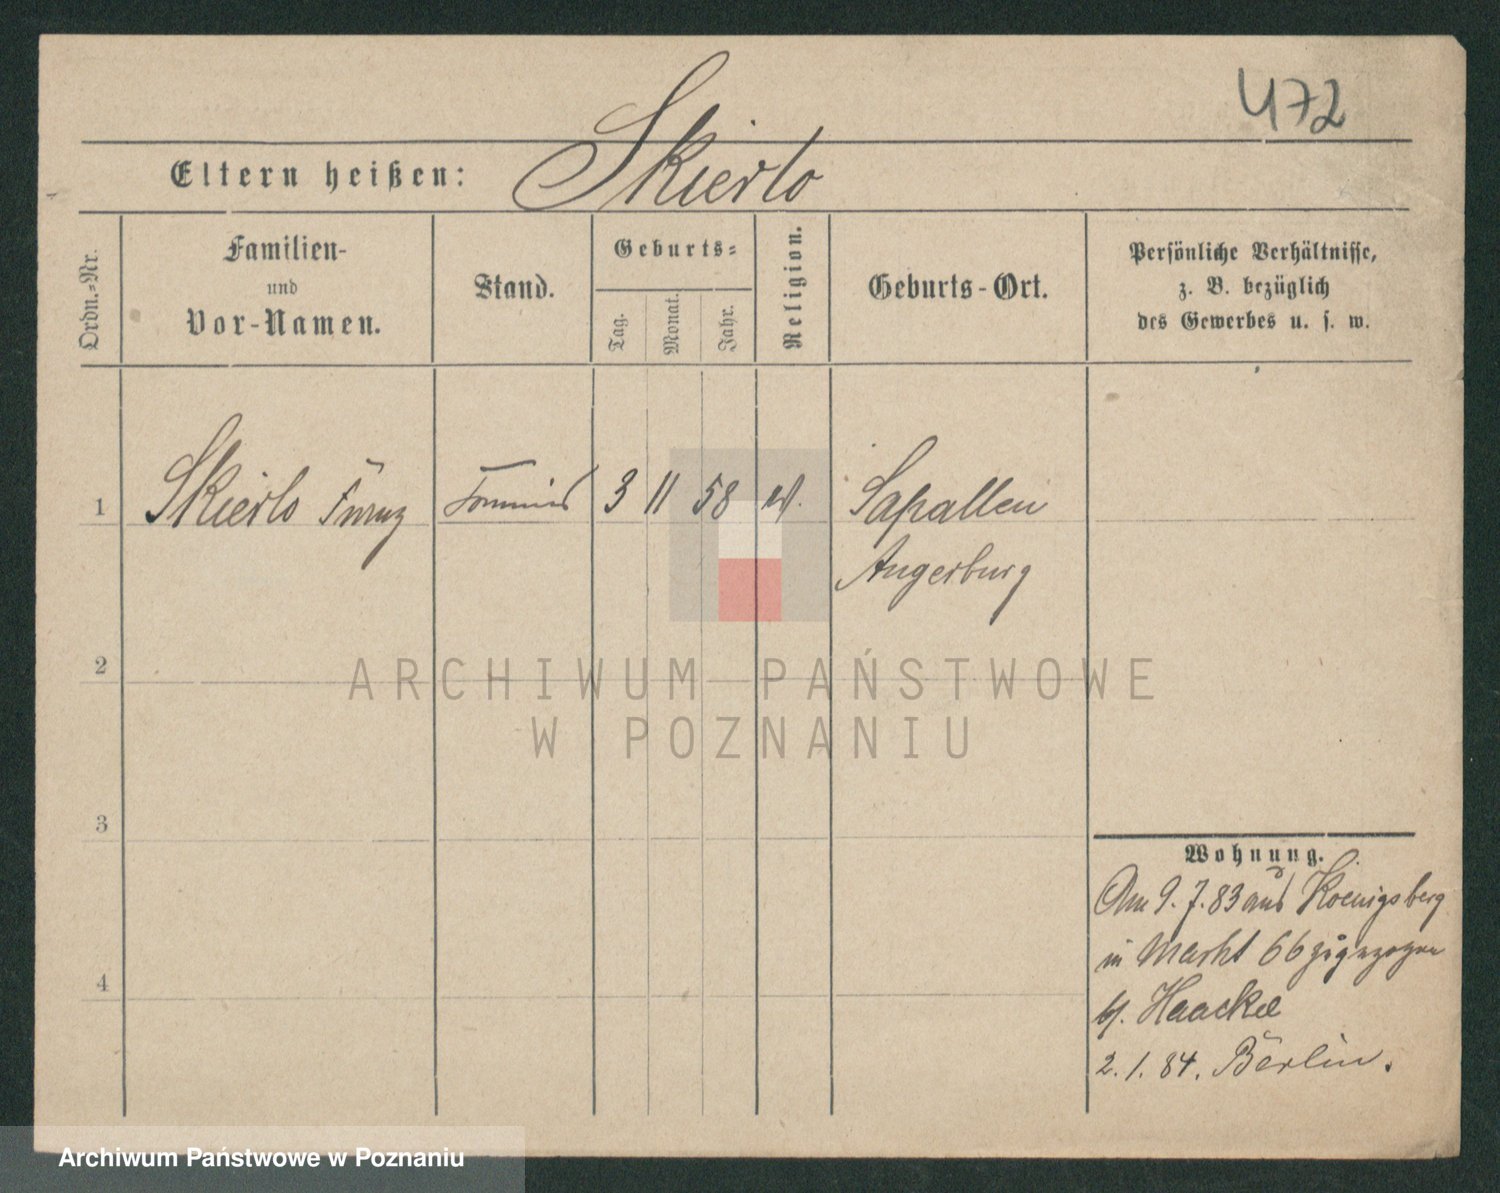 472
Eltern heißen: Skierlo
Ordn.-Nr.
Familien-
und
Vor-Namen.
Stand.
Geburts-
Tag.
Monat.
Jahr.
Religion.
Geburts-Ort.
Persönliche Verhältnisse,
z. B. bezüglich
des Gewerbes u. s. w.
1 Skierlo Franz Commis 3 11 58 ev. Sapallen
Angerburg
2
3
4
Wohnung.
Am 9. 7. 83 aus Koenigsberg
in Markt 66 zugezogen
b/. Haacke
2. 1. 84. Berlin.
ARCHIWUM PAŃSTWOWE
W POZNANIU
Archiwum Państwowe w Poznaniu